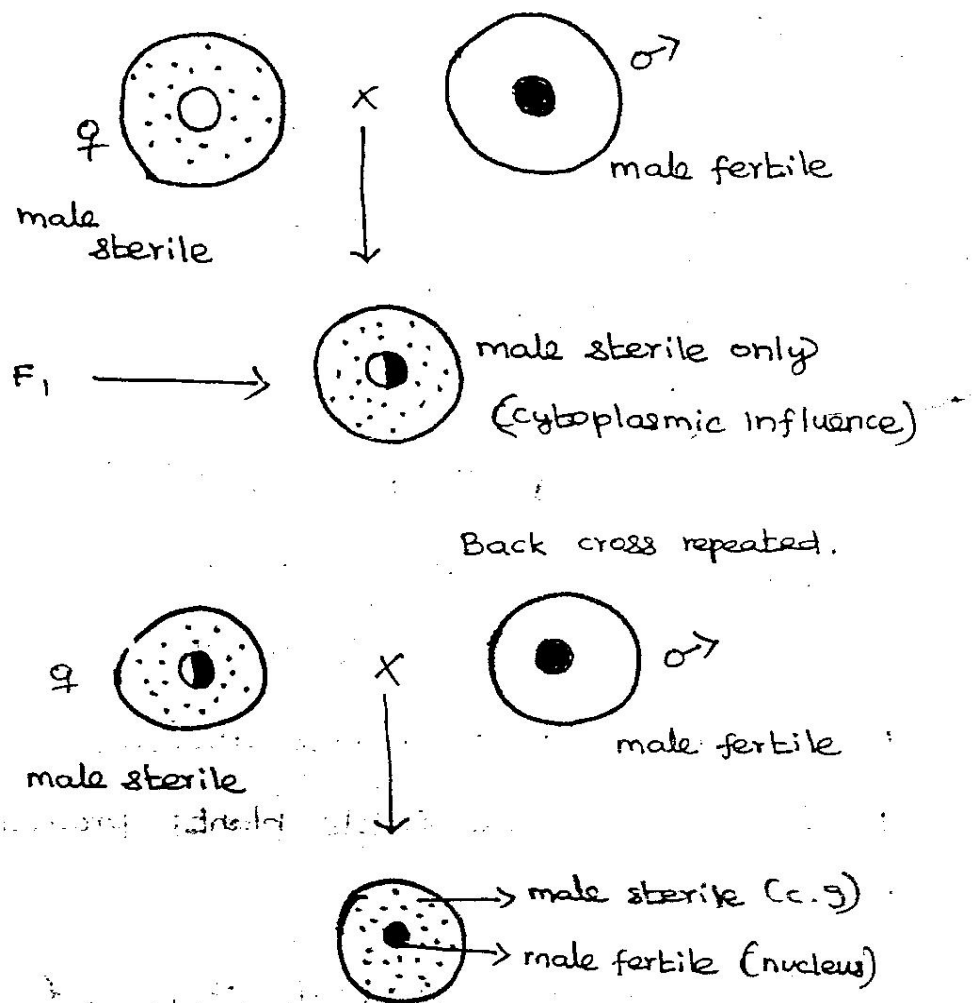 ♀
X
♂
male fertile
male
sterile
F1
male sterile only
(cytoplasmic influence)
Back cross repeated.
♀
X
♂
male fertile
male sterile
male sterile (c.g)
male fertile (nucleus)